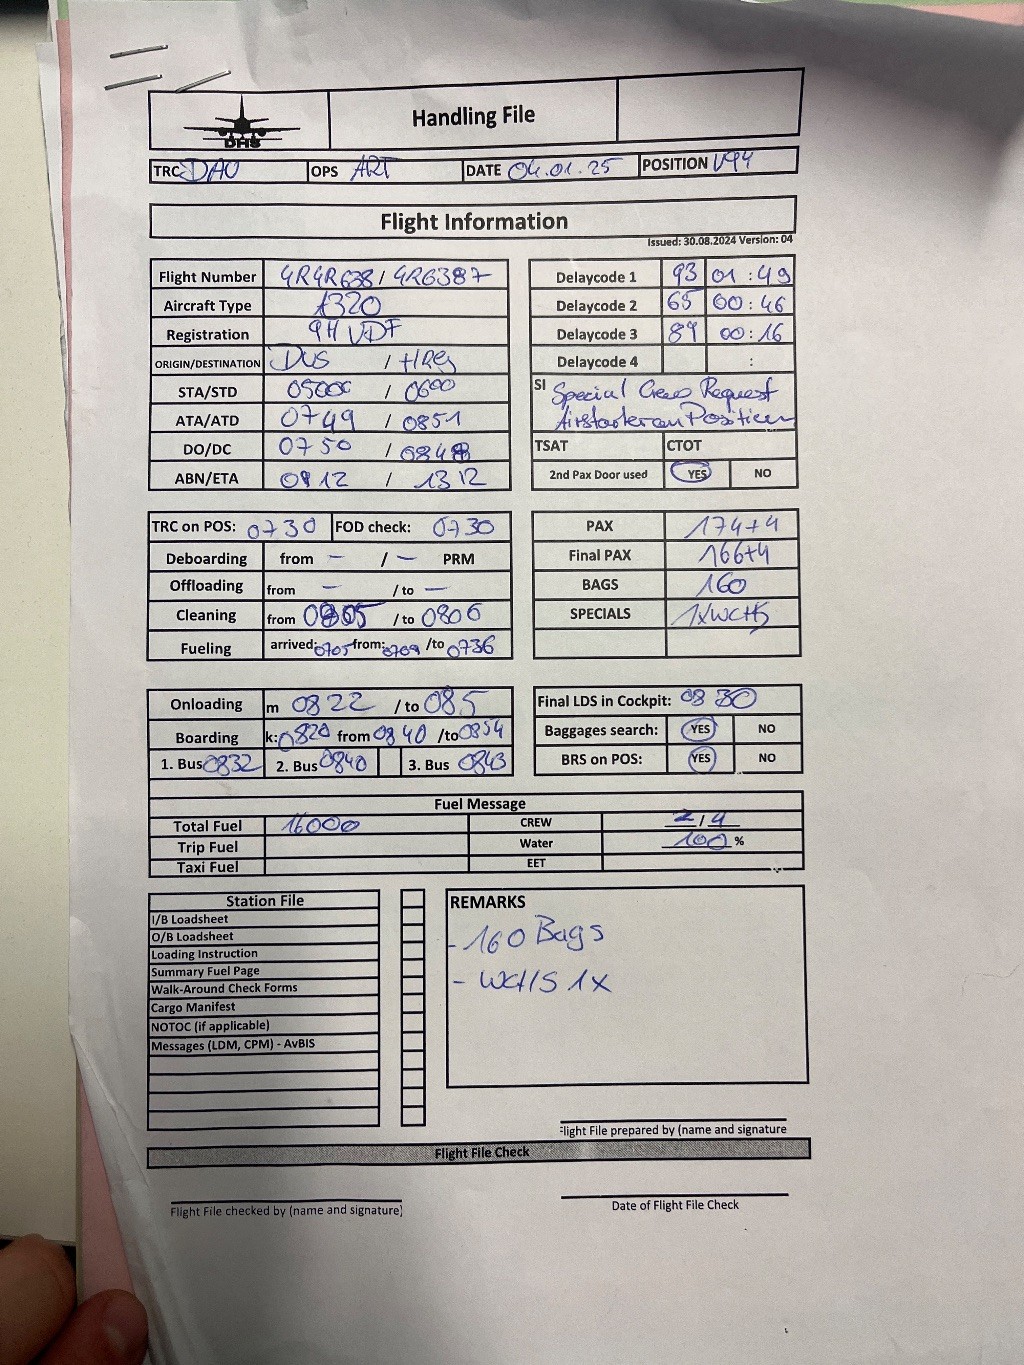 DAS
Handling File
TRC DAO OPS ART DATE 04.01.25 POSITION V94
Flight Information
Issued: 30.08.2024 Version: 04
Flight Number 4R4R638 / 4R6387
Aircraft Type A320
Registration 9H
ORIGIN/DESTINATION DUS / HRG
STA/STD / 0600
ATA/ATD 0749 / 0851
DO/DC 0750 / 0848
ABN/ETA 0812 / 1312
Delaycode 1 93 01 : 49
Delaycode 2 65 00 : 46
Delaycode 3 89 00 : 16
Delaycode 4 :
SI Special Crew Request
Airstarter on Position
TSAT CTOT
2nd Pax Door used YES NO
TRC on POS: 0730 FOD check: 0730
Deboarding from – / – PRM
Offloading from – / to –
Cleaning from 0805 / to 0806
Fueling arrived: 0705 from: 0709 /to 0736
PAX 174+4
Final PAX 166+4
BAGS 160
SPECIALS 1xWCHS
Onloading m 0822 / to 085
Boarding k: 0820 from 0840 /to 0854
1. Bus 0832 2. Bus 0840 3. Bus 0843
Final LDS in Cockpit: 08 30
Baggages search: YES NO
BRS on POS: YES NO
Fuel Message
Total Fuel 16000 CREW 2/4
Trip Fuel Water 100 %
Taxi Fuel EET
Station File
I/B Loadsheet
O/B Loadsheet
Loading Instruction
Summary Fuel Page
Walk-Around Check Forms
Cargo Manifest
NOTOC (if applicable)
Messages (LDM, CPM) - AvBIS
REMARKS
- 160 Bags
- WCHS 1X
Flight File prepared by (name and signature
Flight File Check
Flight File checked by (name and signature)
Date of Flight File Check